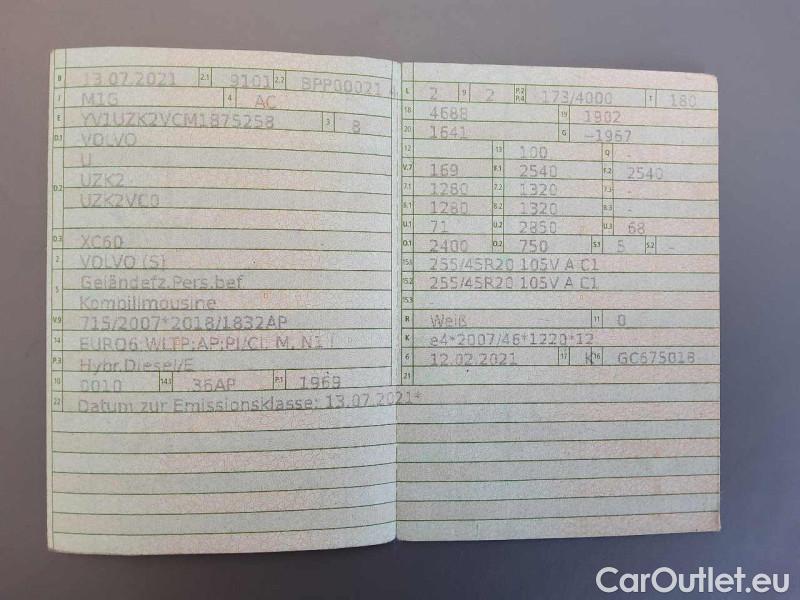 B 13.07.2021 2.1 9101 2.2 BPP00021 4
J M1G 4 AC
E YV1UZK2VCM1875258 3 8
D.1 VOLVO
U
D.2 UZK2
UZK2VC0
D.3 XC60
2 VOLVO (S)
5 Geländefz.Pers.bef
Kombilimousine
V.9 715/2007*2018/1832AP
14 EURO6;WLTP;AP;PI/CI, M, N1 I
P.3 Hybr.Diesel/E
10 0010 14.1 36AP P.1 1969
22 Datum zur Emissionsklasse: 13.07.2021*
L 2 9 2 P.2 P.4 173/4000 T 180
18 4688 19 1902
20 1641 G -1967
12 13 100 Q -
V.7 169 F.1 2540 F.2 2540
7.1 1280 7.2 1320 7.3 -
8.1 1280 8.2 1320 8.3 -
U.1 71 U.2 2850 U.3 68
O.1 2400 O.2 750 S.1 5 S.2 -
15.1 255/45R20 105V A C1
15.2 255/45R20 105V A C1
15.3 -
R Weiß 11 0
K e4*2007/46*1220*12
6 12.02.2021 17 K 16 GC675018
21
CarOutlet.eu